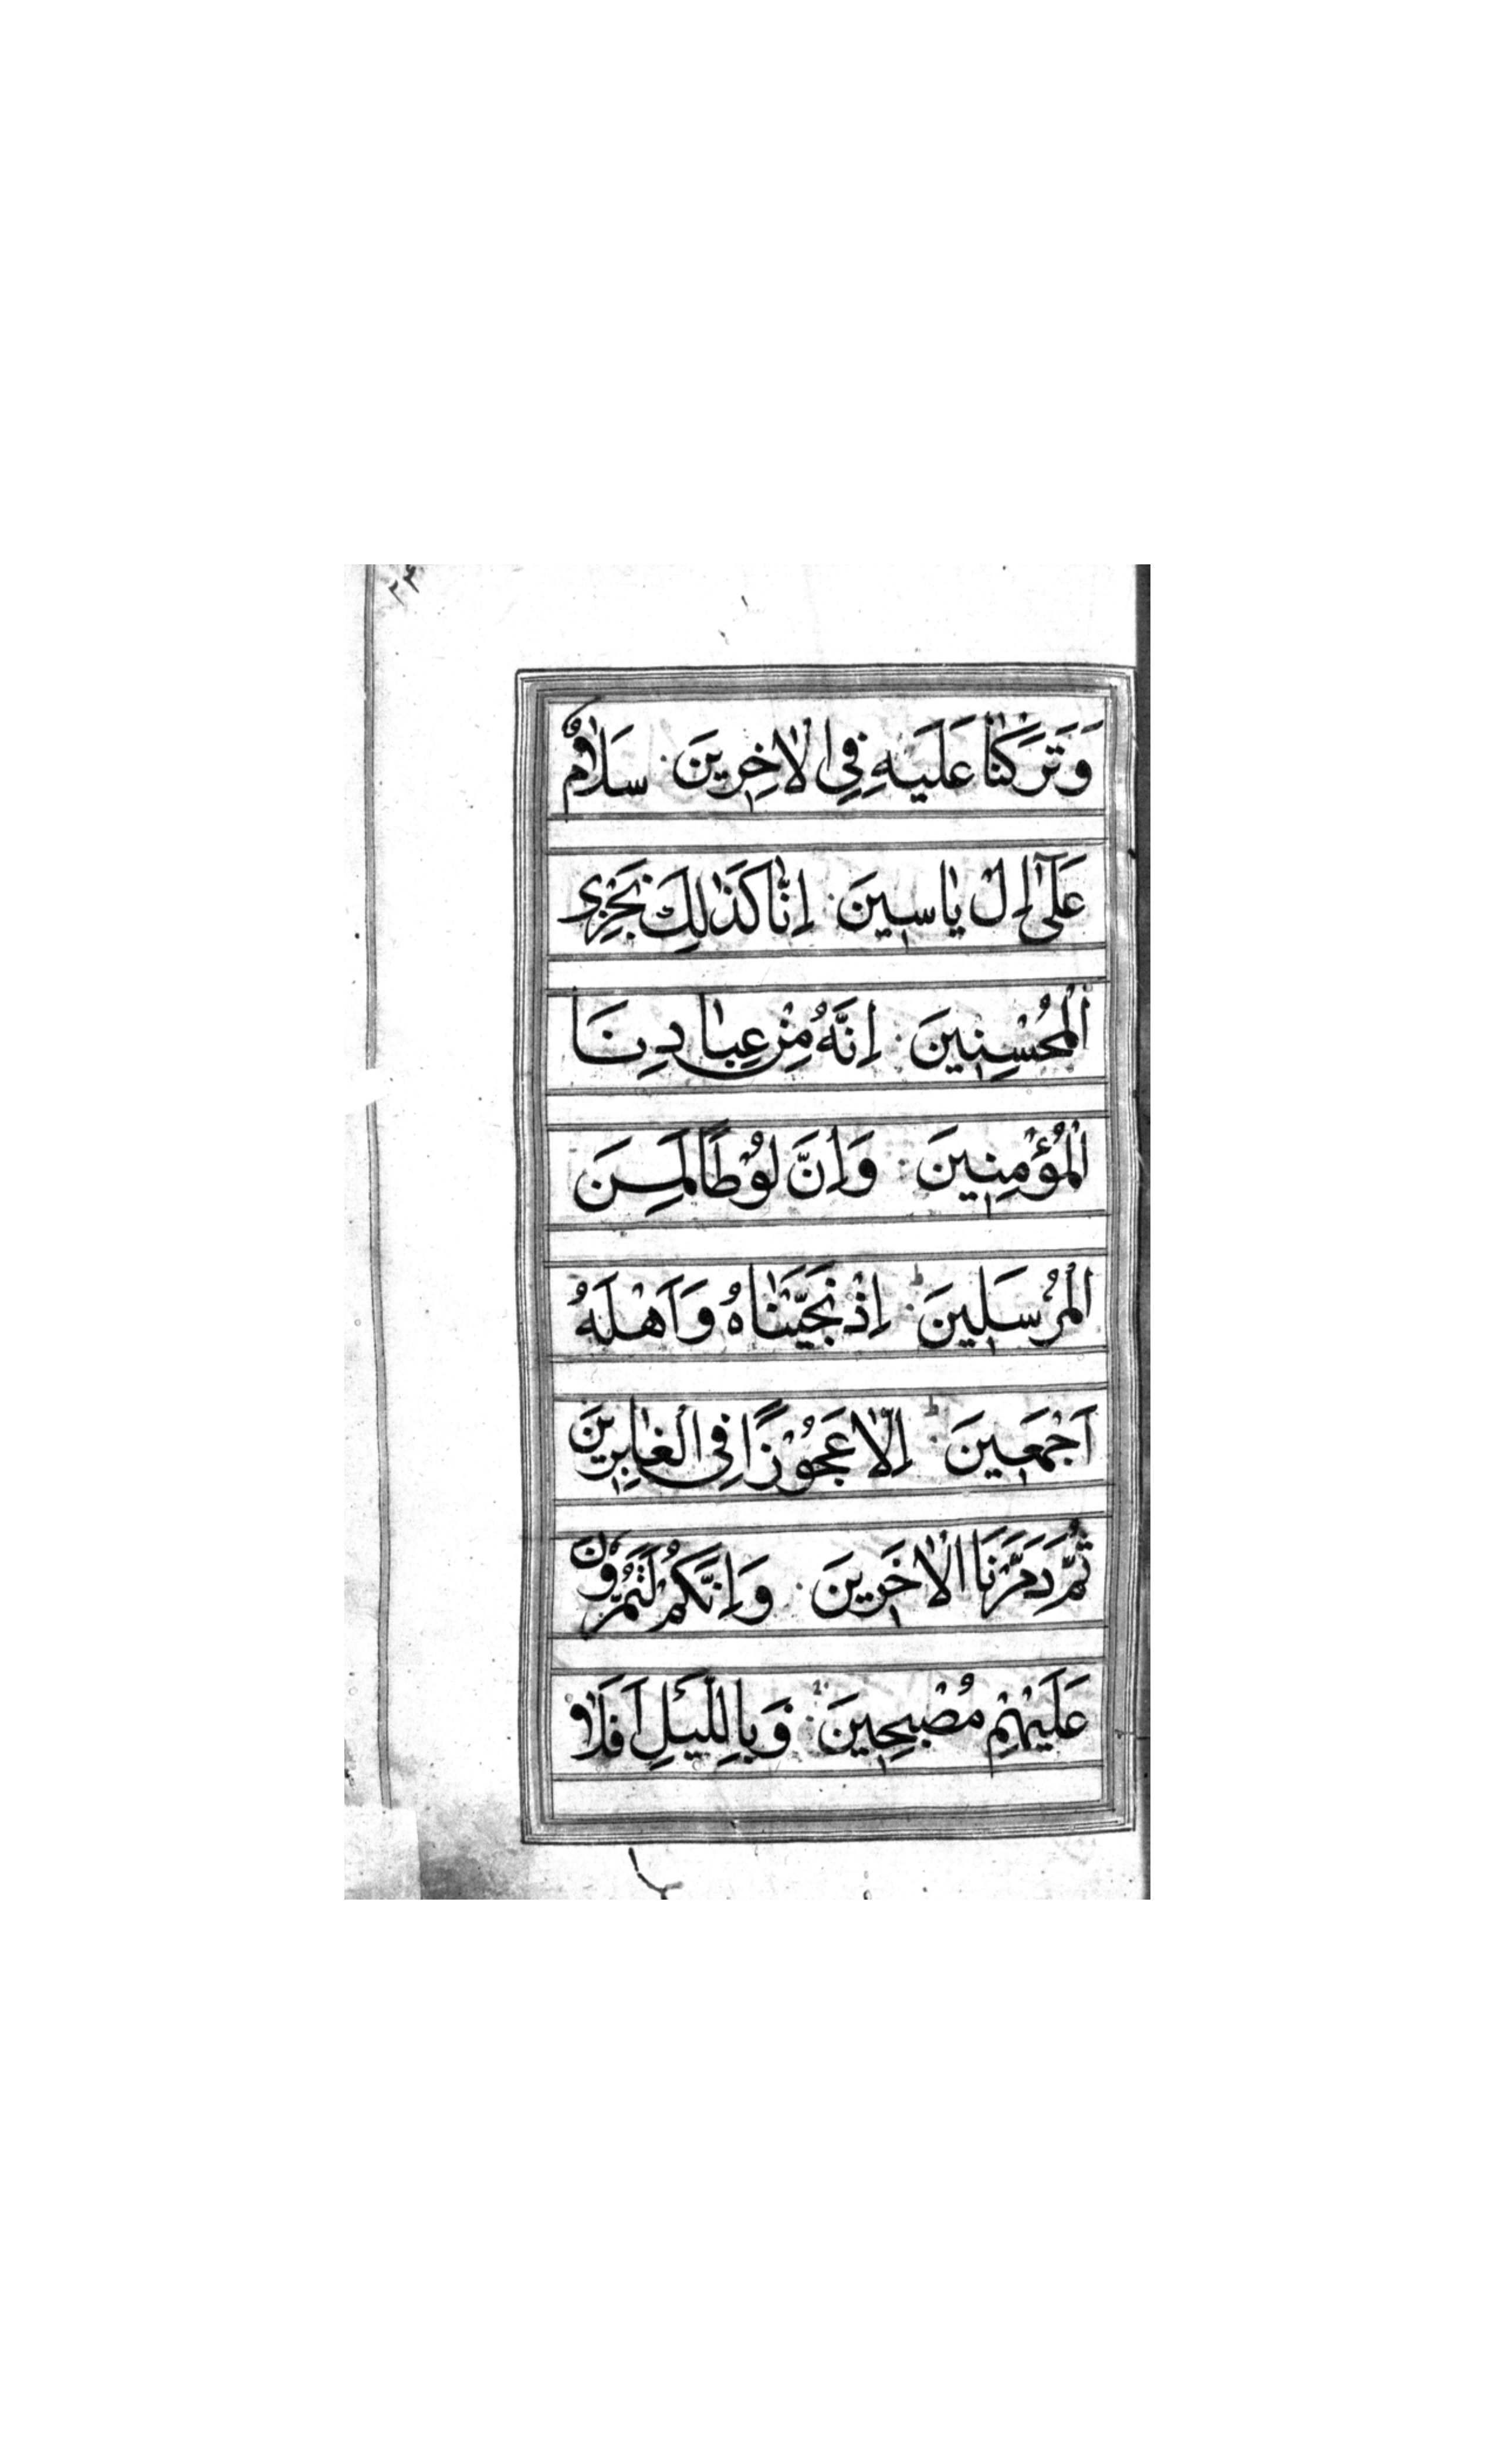 ٢٣
وَتَرَكْنَا عَلَيْهِ فِي الْاٰخِرِينَ سَلَامٌ
عَلٰٓى اِلْ يَاسِينَ اِنَّا كَذٰلِكَ نَجْزِي
الْمُحْسِنِينَ اِنَّهُ مِنْ عِبَادِنَا
الْمُؤْمِنِينَ وَاِنَّ لُوْطًا لَمِنَ
الْمُرْسَلِينَ اِذْ نَجَّيْنَاهُ وَاَهْلَهُ
اَجْمَعِينَ اِلَّا عَجُوْزًا فِي الْغَابِرِينَ
ثُمَّ دَمَّرْنَا الْاٰخَرِينَ وَاِنَّكُمْ لَتَمُرُّونَ
عَلَيْهِمْ مُصْبِحِينَ وَبِالَّيْلِ اَفَلَا